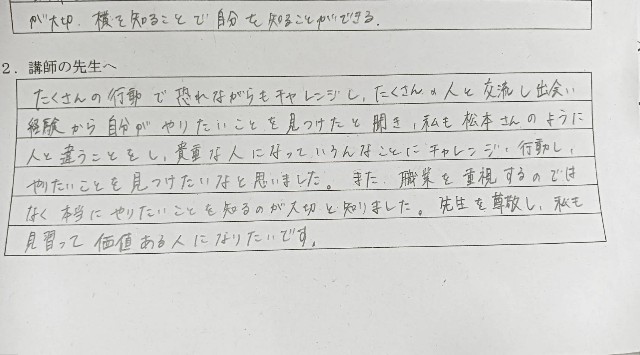 が大切、横を知ることで自分を知ることができる。
2．講師の先生へ
たくさんの行動で恐れながらもチャレンジし、たくさんの人と交流し出会い
経験から自分がやりたいことを見つけたと聞き、私も松本さんのように
人と違うことをし、貴重な人になっていろんなことにチャレンジ、行動し、
やりたいことを見つけたいなと思いました。また、職業を重視するのでは
なく本当にやりたいことを知るのが大切と知りました。先生を尊敬し、私も
見習って価値ある人になりたいです。